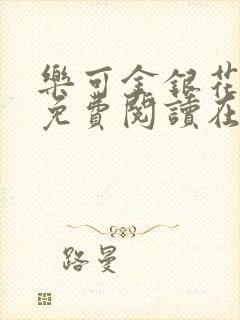 樂可金銀花
免費閱讀在
路曼